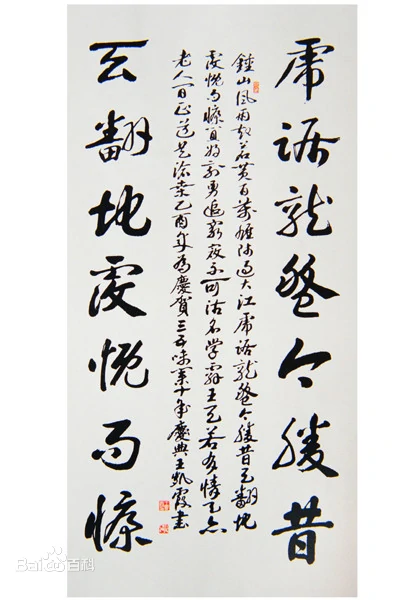 虎踞龍盤今勝昔
鐘山風雨起蒼黃百萬雄師過大江虎踞龍盤今勝昔天翻地
覆慨而慷宜將剩勇追窮寇不可沽名學霸王天若有情天亦
老人間正道是滄桑乙酉年為慶賀三五味業十年慶典王凱霞書
天翻地覆慨而慷
Bai百科